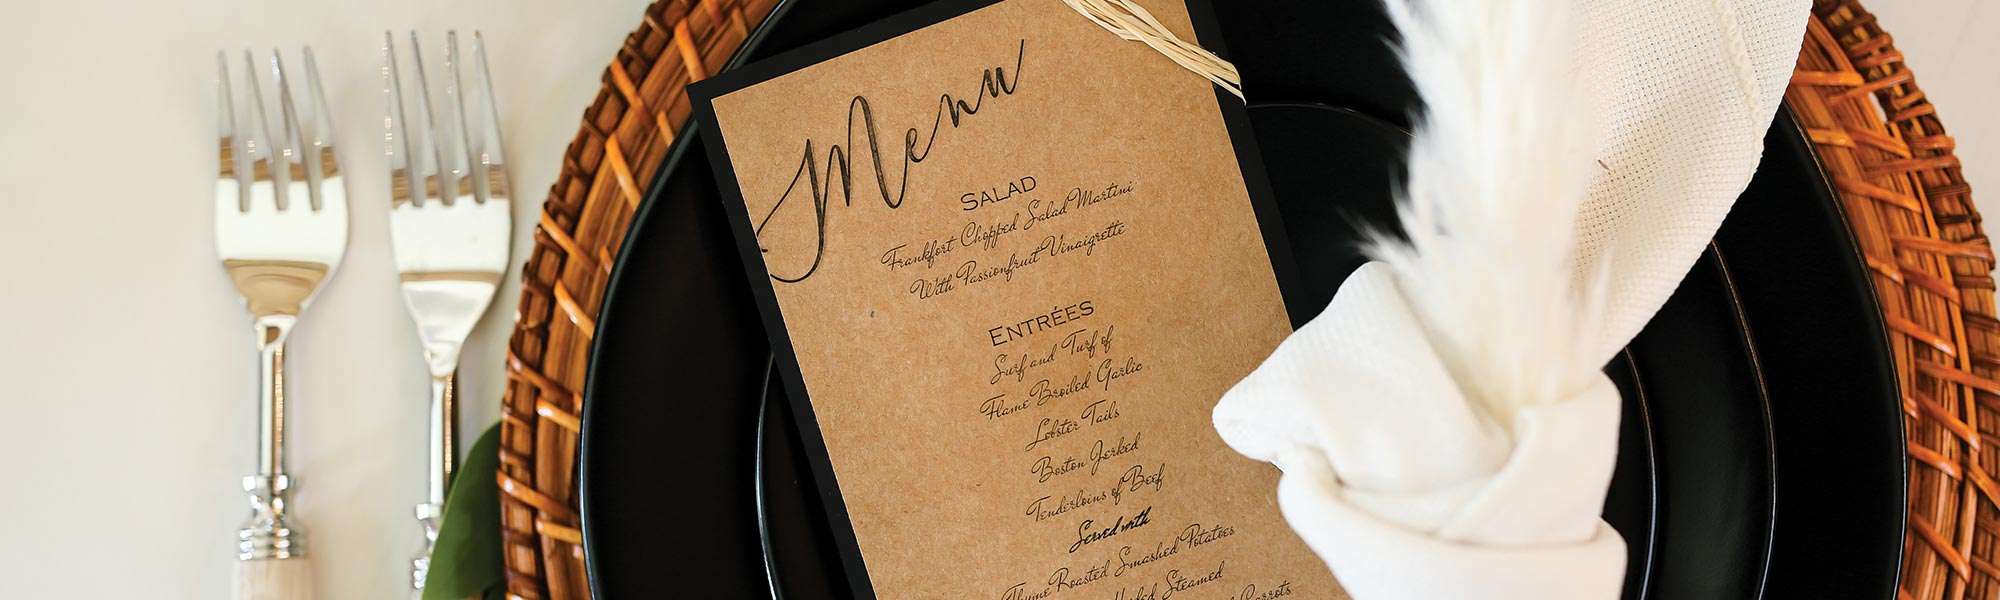 Menu
SALAD
Frankfort Chopped Salad Martini
With Passionfruit Vinaigrette
ENTRÉES
Surf and Turf of
Flame Broiled Garlic
Lobster Tails
Boston Jerked
Tenderloins of Beef
Served with
Thyme Roasted Smashed Potatoes
Steamed
Carrots